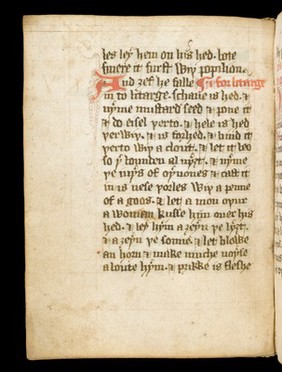 les ley hem on his hed. bote
smere it furst wiþ popilion.
And ȝef he falle for litarge
in to litarge. schaue is hed. &
nyme mustard seed & poue it
& do eisel þerto. & hele is hed
þer wiþ. & is forhed. & bind it
þerto wiþ a clout. & let it beo
so y bounden al nyȝt. & nyme
þe iuys of oynones & cast it
in is nese þorles wiþ a penne
of a goos. & let a mon oþur
a womon kusse hym ouer his
hed. & ley hym a ȝeyn þe lyȝt.
& a ȝeyn þe sonne. & let blowe
an horn & make muche noyse
a boute hym. & prikke is fleshe